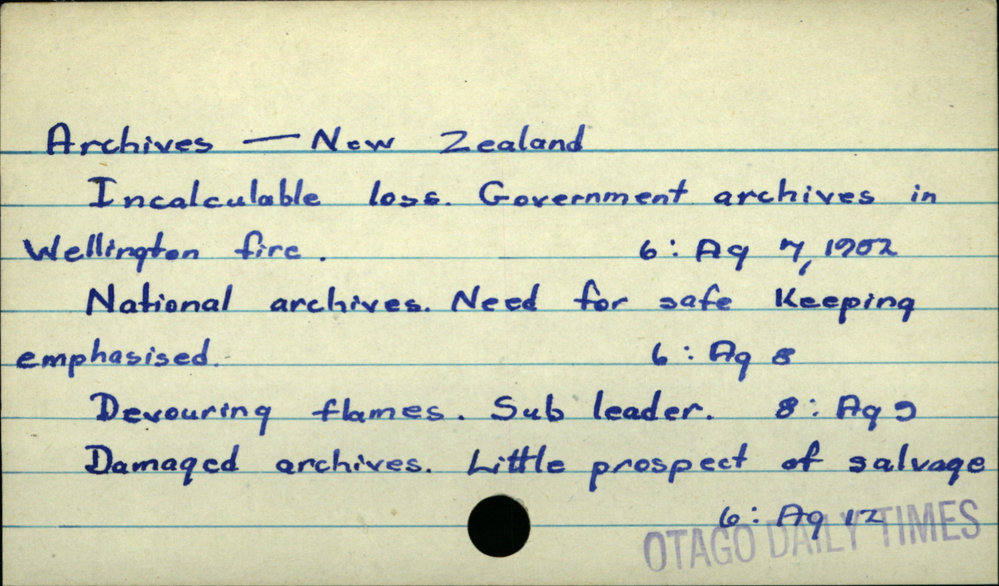 Archives — New Zealand
Incalculable loss. Government archives in
Wellington fire. 6: Ag 7, 1952
National archives. Need for safe Keeping
emphasised. 6: Ag 8
Devouring flames. Sub leader. 8: Ag 9
Damaged archives. Little prospect of salvage
6: Ag 12
OTAGO DAILY TIMES